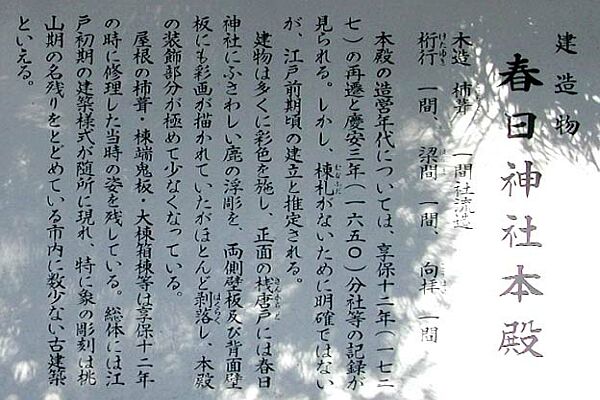 建造物
春日神社本殿
木造 柿葺 一間社流造
桁行 一間、梁間 一間、向拝 一間
本殿の造営年代については、享保十二年(一七二
七)の再遷と慶安三年(一六五〇)分社等の記録が
見られる。しかし、棟札がないために明確ではない
が、江戸前期頃の建立と推定される。
建物は多くに彩色を施し、正面の桟唐戸には春日
神社にふさわしい鹿の浮彫を、両側壁板及び背面壁
板にも彩画が描かれていたがほとんど剥落し、本殿
の装飾部分が極めて少なくなっている。
屋根の柿葺・棟端鬼板・大棟箱棟等は享保十二年
の時に修理した当時の姿を残している。総体には江
戸初期の建築様式が随所に現れ、特に象の彫刻は桃
山期の名残りをとどめている市内に数少ない古建築
といえる。